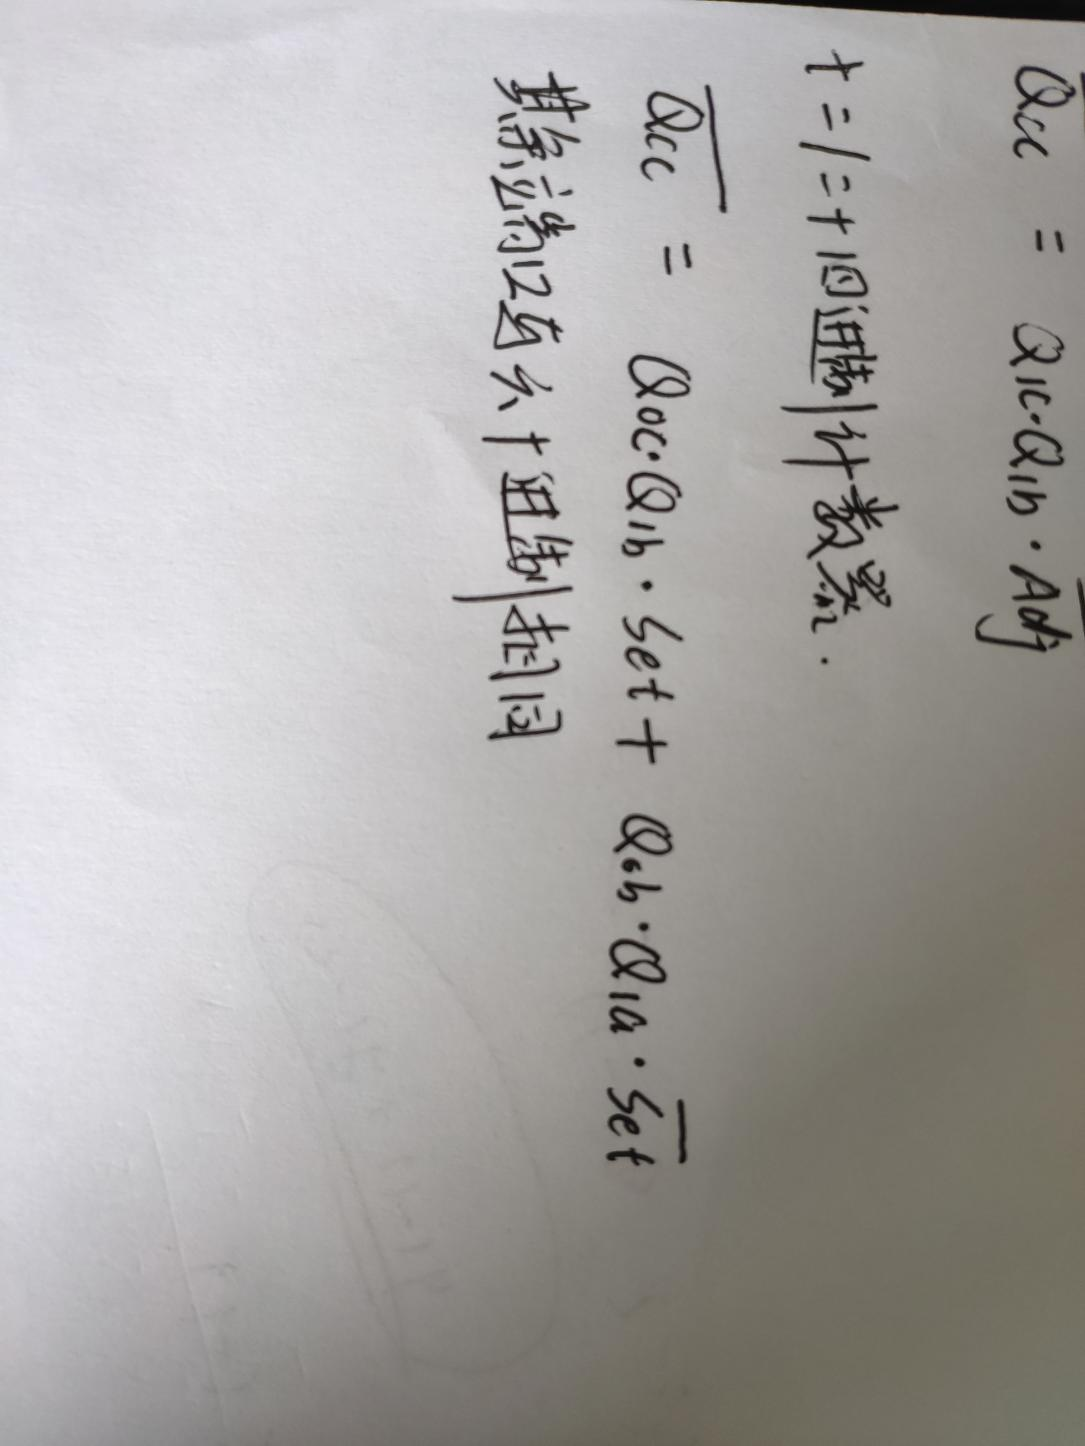 Qcc = Q1c·Q1b·Adj
十二/二十四进制计数器.
Qcc = Q0c·Q1b·Set + Q0b·Q1a·Set
其余端口与六十进制相同